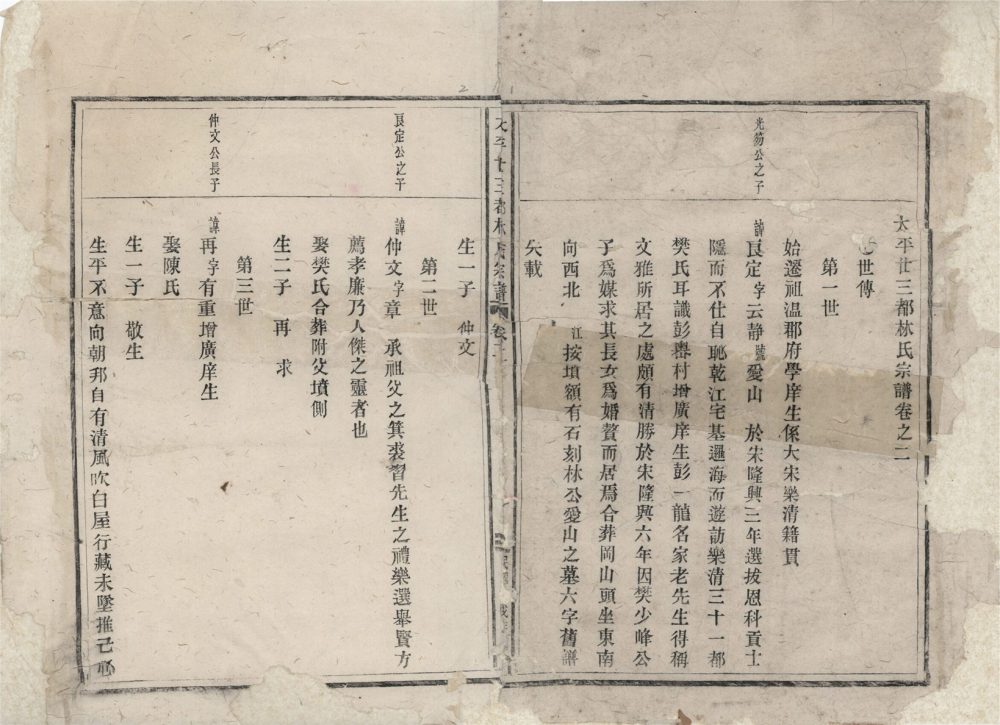 太平廿三都林氏宗譜卷之二
世傳
第一世
始遷祖溫郡府學庠生係大宋樂清籍貫
光笏公之子
諱良定字云静號愛山 於宋隆興三年選拔恩科貢士
隱而不仕自耻乾江宅基邇海而遊訪樂清三十一都
樊氏耳識彭嶴村增廣庠生彭一龍名家老先生得稱
文雅所居之處頗有清勝於宋隆興六年因樊少峰公
子為媒求其長女為婚贅而居焉合葬岡山頭坐東南
向西北 江按墳額有石刻林公愛山之墓六字舊譜
失載
太平廿三都林氏宗譜 卷之二
生一子 仲文
第二世
良定公之子
諱仲文字章 承祖父之箕裘習先生之禮樂選舉賢方
薦孝廉乃人傑之靈者也
娶樊氏合葬附父墳側
生二子 再 求
第三世
仲文公長子
諱再字有重增廣庠生
娶陳氏
生一子 敬生
生平不意向朝邦自有清風吹白屋行藏未墜推己心
2
1